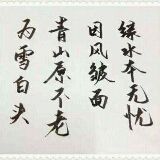 绿水本无忧
因风皱面
青山原不老
为雪白头